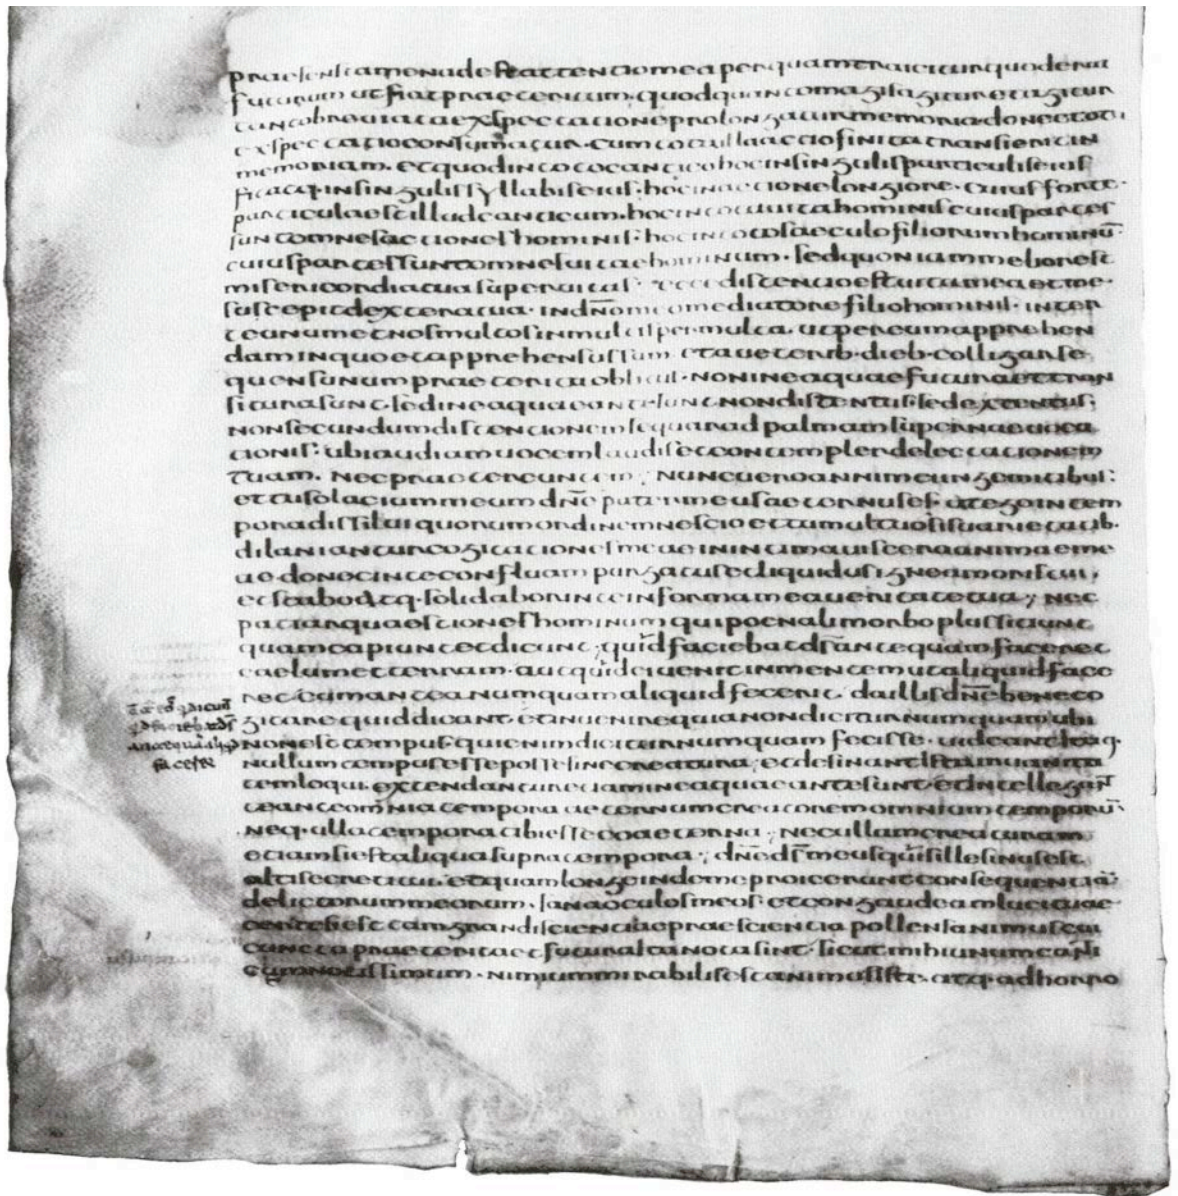 praesens tamen adest attentio mea per quam traicitur quod erat
futurum ut fiat praeteritum. quod quanto magis agitur et agitur
tanto breviata expectatione prolongatur memoria. donec tota
expectatio consumatur. cum tota illa actio finita transierit in
memoriam. et quod in toto cantico hoc in singulis particulis eius
fit atq. in singulis syllabis eius. hoc in actione longiore. cuius forte
particula est illud canticum. hoc in tota uita hominis cuius partes
sunt omnes actiones hominis. hoc in toto saeculo filiorum hominū.
cuius partes sunt omnes uitae hominum. sed quoniam melior est
misericordia tua super uitas ecce distentio est uita mea et me
suscepit dextera tua. in dn̄o meo mediatore filio hominis. inter
te unum et nos multos in multis per multa. ut per eum apprehen
dam in quo et apprehensus sum et a ueterib. dieb. colligar se
quens unum praeterita oblitus. non in ea quae futura et tran
situra sunt. sed in ea quae ante sunt non distentus sed extentus;
non secundum distentionem sequar ad palmam supernae uoca
tionis. ubi audiam uocem laudis et contempler delectationem
tuam. nec praetereuntem; nunc uero anni mei in gemitibus:
et tu solacium meum dn̄e pater meus aeternus es. at ego in tem
pora dissilui quorum ordinem nescio et tumultuosis uarietatib.
dilaniantur cogitationes meae in intima uiscera animae me
ae donec in te confluam purgatus et liquidus igne amoris tui;
et stabo atq. solidabor in te in forma mea ueritate tua; nec
patiar quaestiones hominum qui poenali morbo plus sitiunt
quam capiunt et dicunt; quid faciebat ds̄ antequam faceret
caelum et terram. aut quid ei uenit in mentem ut aliquid face
ret cum antea numquam aliquid fecerit. da illis dn̄e bene co
gitare quid dicant. et inuenire quia non dicitur numquam ubi
non est tempus. qui enim dicitur numquam fecisse. uideant itaq.
nullum tempus esse posse sine creatura; et desinant istam uanita
tem loqui. extendantur etiam in ea quae ante sunt. et intellegant
te ante omnia tempora aeternum creatorem omnium temporū.
neq. ulla tempora tibi esse coaeterna; nec ullam creaturam
etiam si est aliqua supra tempora; dn̄e ds̄ meus quis ille sinus est
alti secreti tui. et quam longe inde me proiecerunt consequentia
delictorum meorum. sana oculos meos. et congaudeam luci tuae.
certe si est tam grandi scientia et praescientia pollens animus cui
cuncta praeterita et futura ita nota sint. sicut mihi unum canti
cum notissimum. nimium mirabilis est animus iste. atq. ad horro